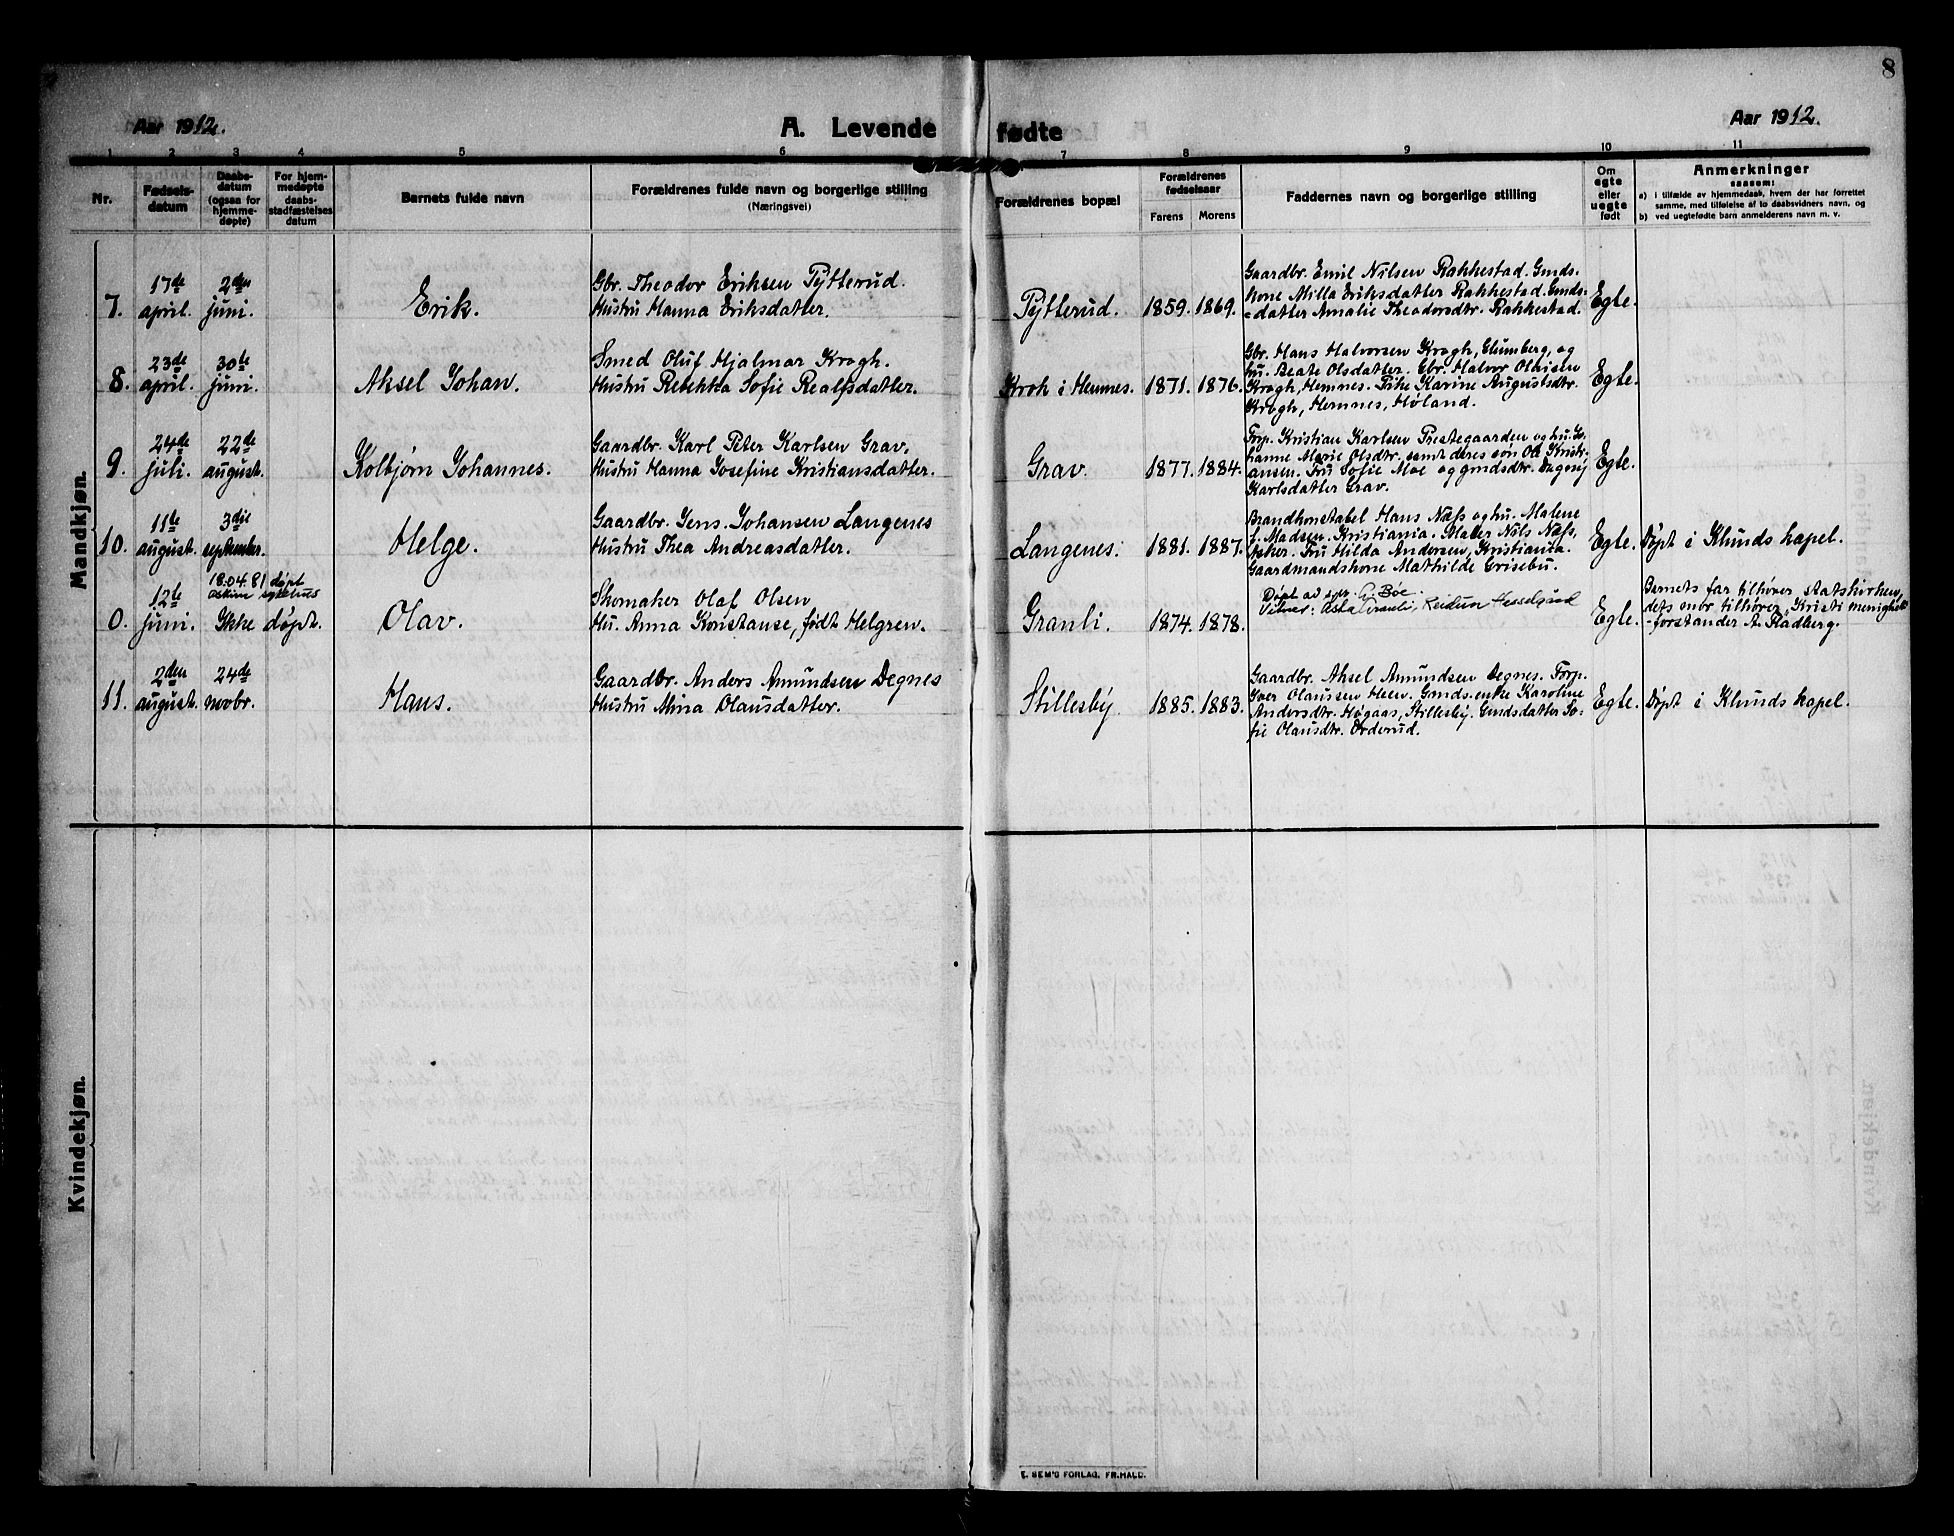 8
Aar 1912.
A. Levende fødte
Aar 1912.
1 2 3 4 5 6 7 8 9 10 11
Nr.
Fødsels-
datum
Daabs-
datum
(ogsaa for
hjemme-
døpte)
For hjem-
medøpte
daabs-
stadfæstelses
datum
Barnets fulde navn
Forældrenes fulde navn og borgerlige stilling
(Næringsvei)
Forældrenes bopæl
Forældrenes
fødselsaar
Farens Morens
Faddernes navn og borgerlige stilling
Om
egte
eller
uegte
født
Anmerkninger
saasom:
a) i tilfælde av hjemmedaab, hvem der har forrettet
samme, med tilføielse af to daabsvidners navn, og
b) ved uegtefødte barn anmelderens navn m. v.
Mandkjøn.
7.
17de
april.
2den
juni.
Erik.
Gbr. Theodor Eriksen Pytterud.
Hustru Hanna Eriksdatter.
Pytterud.
1859. 1869.
Gaardbr. Emil Nilsen Rakkestad. Gmds.-
kone Milla Eriksdatter Rakkestad. Gmds-
-datter Amalie Theodorsdtr. Rakkestad.
Egte.
8.
23de
april.
30te
juni.
Aksel Johan.
Smed Oluf Hjalmar Krogh.
Hustru Rebekka Sofie Realfsdatter.
Krok i Hemnes.
1871. 1876.
Gbr. Hans Halvorsen Krogh, Glumberg, og
hu. Beate Olsdatter. Gbr. Halvor Olvisen
Krogh, Hemnes. Pike Karine Augustsdtr.
Krogh, Hemnes, Høland.
Egte.
9.
24de
juli.
22de
august.
Kolbjørn Johannes.
Gaardbr. Karl Peter Karlsen Grav.
Hustru Hanna Josefine Kristiansdatter.
Grav.
1877. 1884.
Forp. Kristian Karlsen Prestegaarden og hu. Jo-
hanne Marie Olsdtr. samt deres søn Ole Kristi-
ansen. Fru Sofie Moe og gmdsdtr. Dagny
Karlsdatter Grav.
Egte.
10.
11te
august.
3die
september.
Helge.
Gaardbr. Jens Johansen Langenes
Hustru Thea Andreasdatter.
Langenes.
1881. 1887.
Brandkonstabel Hans Næss og hu. Malene
f. Madsen. Kristiania. Maler Nils Næss,
Asker. Fru Hilda Andersen, Kristiania.
Gaardmandskone Mathilde Grisebu.
Egte.
Døpt i Klunds kapel.
0.
12te
juni.
18.04.81 døpt
Askim sykehus
Ikke døpt.
Olav.
Skomaker Olaf Olsen
Hu. Anna Konstanse, født Helgren.
Granli.
1874. 1878.
Døpt av spr. G. Bøe.
Vitner: Asta Granli, Reidun Hesselgud
Egte.
Barnets far tilhører Statskirken,
dets mor tilhører Kristi menighet
-forstander A. Radberg.
11.
2den
august.
24de
novbr.
Hans.
Gaardbr. Anders Amundsen Degnes
Hustru Mina Olausdatter.
Stillesby.
1885. 1883.
Gaardbr. Aksel Amundsen Degnes. Forp.
Iver Olaussen Heen. Gmds.enke Karoline
Andersdtr. Høgaas, Stillesby. Gmdsdatter So-
fie Olausdtr. Orderud.
Egte.
Døpt i Klunds kapel.
Kvindekjøn.
E. SEM'S FORLAG, FR.HALD.